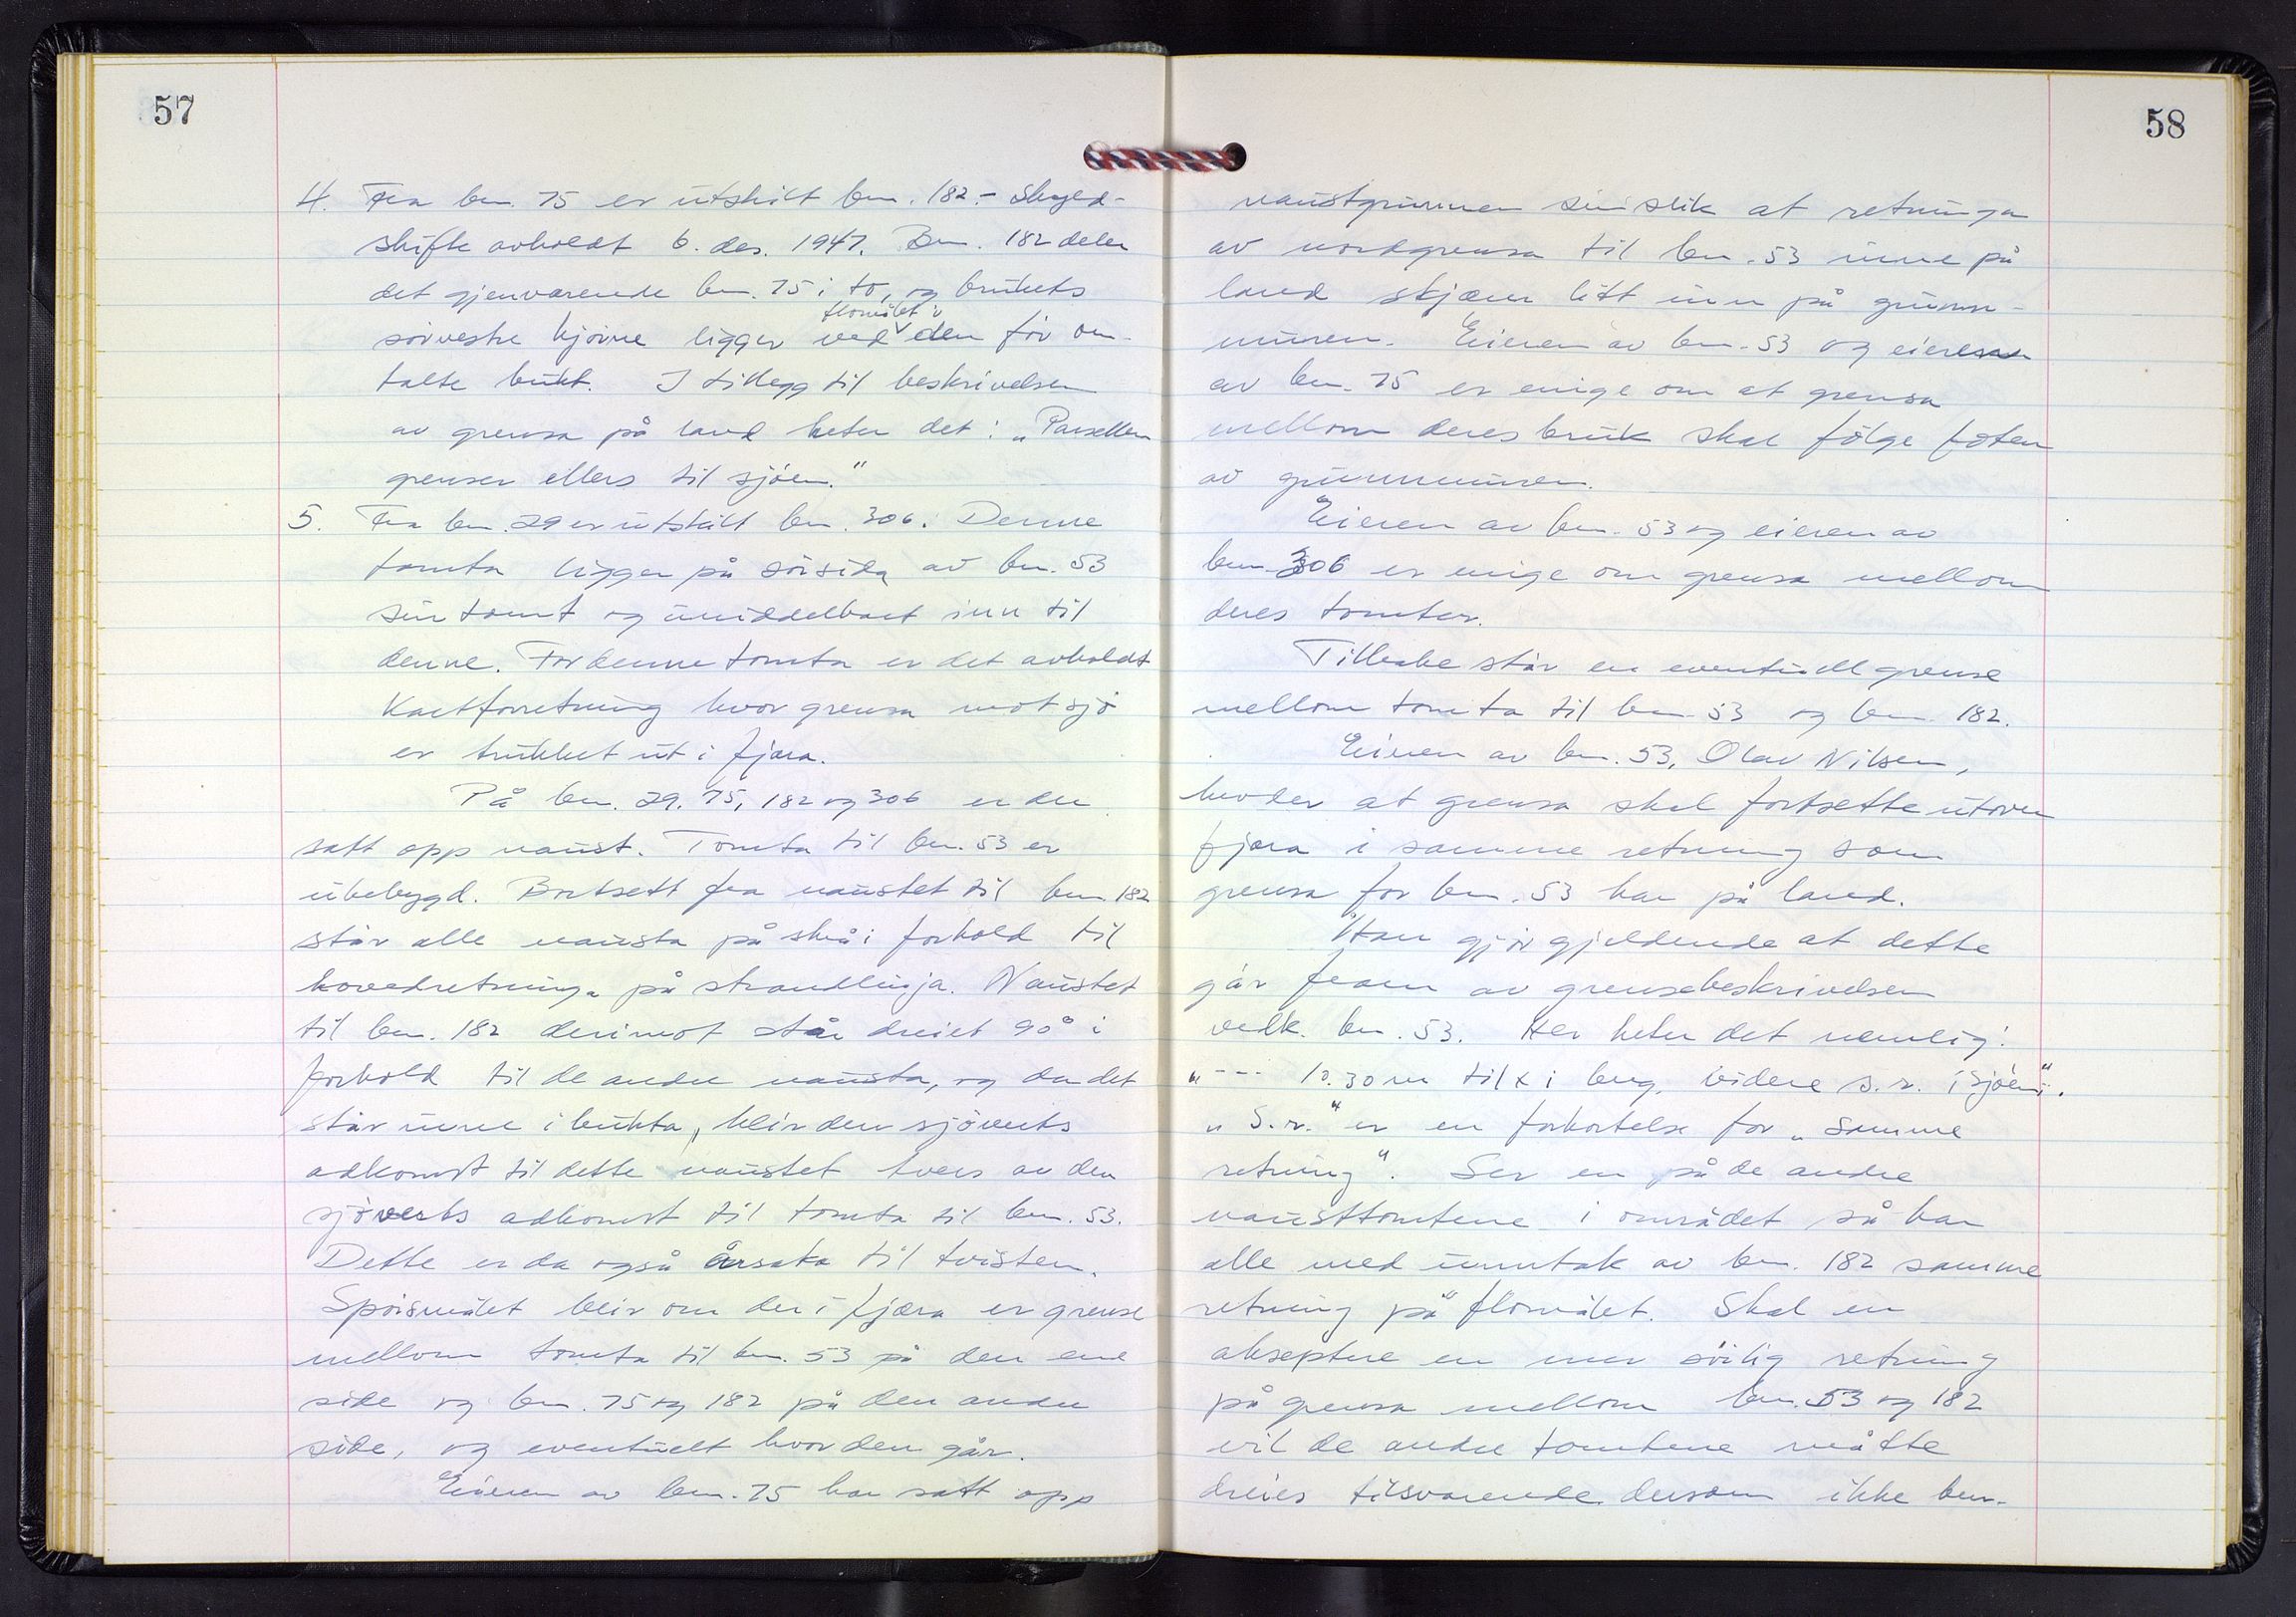 57
4. Fra bnr. 75 er utskilt bnr. 182.- Skyld-
skifte avholdt 6. des. 1947. Bnr. 182 deler
det gjenværende bnr. 75 i to, og brukets
flomålet i
sørvestre hjørne ligger ved den før om-
talte bukt. I tillegg til beskrivelsen
av grensa på land heter det: „Parsellen
grenser ellers til sjøen."
5. Fra bnr. 29 er utskilt bnr. 306. Denne
tomta ligger på sørsida av bnr. 53
sin tomt og umiddelbart inn til
denne. For denne tomta er det avholdt
kartforretning hvor grensa mot sjø
er trukket ut i fjæra.
På bnr. 29, 75, 182 og 306 er der
satt opp naust. Tomta til bnr. 53 er
ubebygd. Bortsett fra naustet til bnr. 182
står alle nausta på skrå i forhold til
hovedretninga på strandlinja. Naustet
til bnr. 182 derimot står dreiet 90° i
forhold til de andre nausta, og da det
står inne i bukta, blir den sjøverts
adkomst til dette naustet tvers av den
sjøverts adkomst til tomta til bnr. 53.
Dette er da også årsaka til tvisten.
Spørsmålet blir om der i fjæra er grense
mellom tomta til bnr. 53 på den ene
side og bnr. 75 og 182 på den andre
side, og eventuelt hvor den går.
Eieren av bnr. 75 har satt opp
58
naustgrunnen sin slik at retninga
av nordgrensa til bnr. 53 inne på
land skjærer litt inn på grunn-
muren. Eieren av bnr. 53 og eieren
av bnr. 75 er enige om at grensa
mellom deres bruk skal følge foten
av grunnmuren.
Eieren av bnr. 53 og eieren av
bnr. 306 er enige om grensa mellom
deres tomter.
Tilbake står en eventuell grense
mellom tomta til bnr. 53 og bnr. 182.
Eieren av bnr. 53, Olav Nilsen,
hevder at grensa skal fortsette utover
fjæra i samme retning som
grensa for bnr. 53 har på land.
Han gjør gjeldende at dette
går fram av grensebeskrivelsen
vedk. bnr. 53. Her heter det nemlig:
„--- 10.30 m til x i berg, videre s.r. i sjøen".
„S.r." er en forkortelse for „samme
retning". Ser en på de andre
nausttomtene i området så har
alle med unntak av bnr. 182 samme
retning på flomålet. Skal en
akseptere en mer sørlig retning
på grensa mellom bnr. 53 og 182
vil de andre tomtene måtte
dreies tilsvarende dersom ikke bnr.